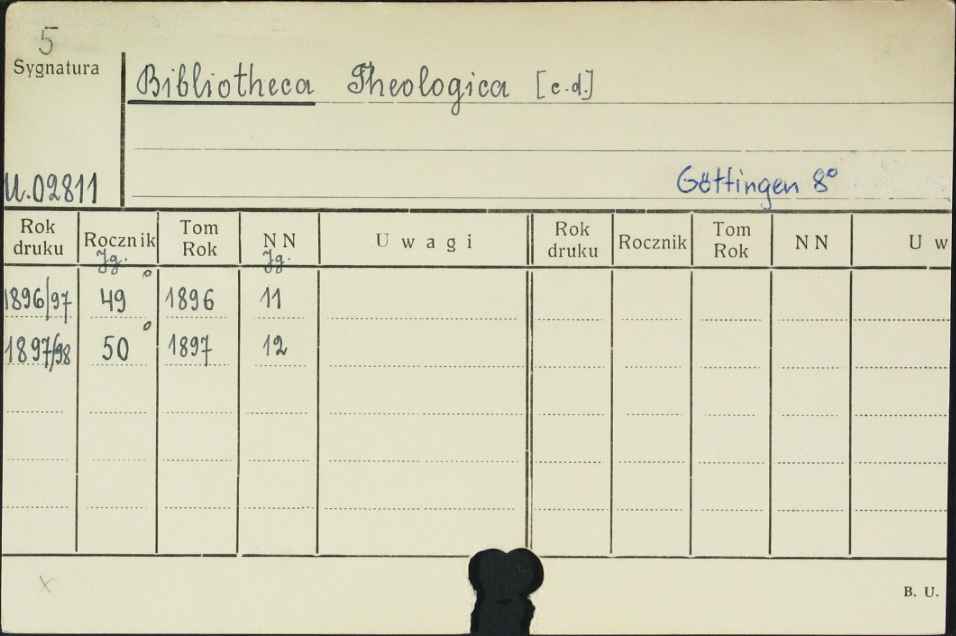 5
Sygnatura
Bibliotheca Theologica [c.d.]
U.02811
Göttingen 8°
Rok druku Rocznik Jg. Tom Rok NN Jg. Uwagi Rok druku Rocznik Tom Rok NN Uw
1896/97 49° 1896 11
1897/98 50° 1897 12
x
B. U.